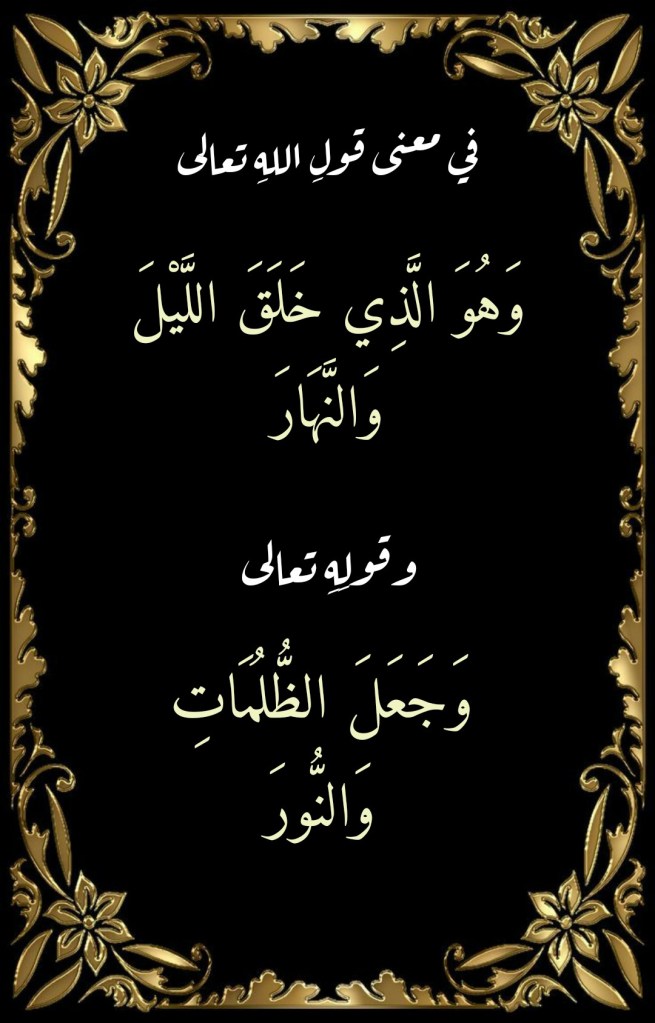 في معنى قولِ اللهِ تعالى
وَهُوَ الَّذِي خَلَقَ اللَّيْلَ
وَالنَّهَارَ
وقولِهِ تعالى
وَجَعَلَ الظُّلُمَاتِ
وَالنُّورَ